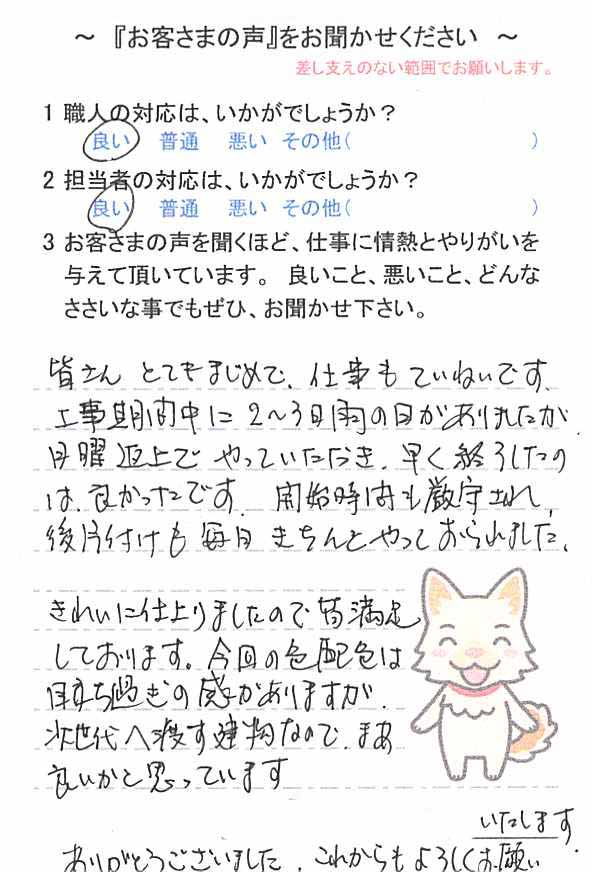 ～ 『お客さまの声』をお聞かせください ～
差し支えのない範囲でお願いします。
1 職人の対応は、いかがでしょうか？
良い 普通 悪い その他( )
2 担当者の対応は、いかがでしょうか？
良い 普通 悪い その他( )
3 お客さまの声を聞くほど、仕事に情熱とやりがいを
与えて頂いています。 良いこと、悪いこと、どんな
ささいな事でもぜひ、お聞かせ下さい。
皆さん とてもまじめで、仕事も ていねいです、
工事期間中に 2～3日雨の日がありましたが
日曜返上で やっていただき、早く終了したの
は、良かったです。 開始時間も厳守され、
後片付けも 毎日 きちんとやっておられました、
きれいに仕上りましたので 皆満足
しております。今回の色配色は
目立ち過ぎの感がありますが、
次世代へ渡す建物なので、まあ
良いかと思っています
ありがとうございました、これからもよろしくお願い
いたします。